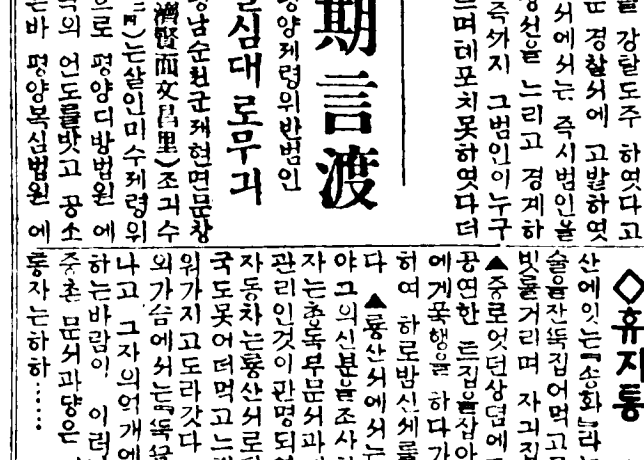 을 강탈도주 하엿다고
은 경찰서에 고발하엿
서에서는 즉시범인을
망선을 느리고 경계하
즉까지 그범인이누구
며 톄포치못하엿다더
期言渡
평양제령위반범인
심대로무긔
남순천군제현면문창
濟賢面文昌里)조긔수
는살인미수제령위
으로 평양디방법원 에
의 언도를밧고 공소
는바 평양복심법원 에
◇휴지통
산에잇는『송화』라는
술을잔뜩집어먹고
빗틀거리며 자긔집
▲중로엇던상뎜에
공연한 트집을잡아
에게폭행을 하다가
하여 하로밤신세를
다 ▲룡산서에서는
야그의신분을조사
자는총독부문서과
관리인것이판명되
자동차는룡산서로
국도못어더먹고느
워가지고도라갓다
외가슴에서는『뚝
나고 그자의억개에
하는바람이 이러
중촌 문서과댱은
통자는하하……